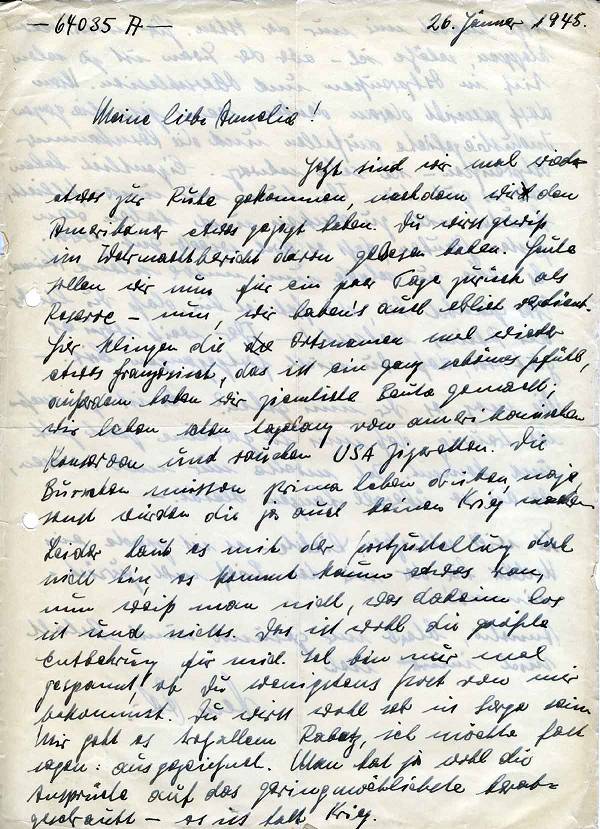 — 64035 A —
26. Jänner 1945.
Meine liebe Amelie!
Jetzt sind wir mal wieder
etwas zur Ruhe gekommen, nachdem wir den
Amerikaner etwas gejagt haben. Du wirst gewiß
im Wehrmachtbericht davon gelesen haben. Heute
sollen wir nun für ein paar Tage zurück als
Reserve – nun, wir haben's auch ehrlich verdient.
Hier klingen die Ortsnamen mal wieder
etwas französisch, das ist ein ganz schönes Gefühl,
außerdem haben wir ziemliche Beute gemacht;
wir leben schon tagelang von amerikanischen
Konserven und rauchen USA Zigaretten. Die
Burschen müssen prima leben drüben, naja,
sonst würden die ja auch keinen Krieg machen
Leider haut es mit der Postzustellung doch
nicht hin, es kommt kaum etwas ran,
nun weiß man nicht, was daheim los
ist und nichts. Das ist wohl die größte
Entbehrung für mich. Ich bin nur mal
gespannt, ob Du wenigstens Post von mir
bekommst. Du wirst wohl in Sorge sein
Mir geht es trotz allem ich möchte fast
sagen: ausgezeichnet. Man hat ja wohl die
Ansprüche auf das geringmöglichste herab-
geschraubt – es ist halt Krieg.